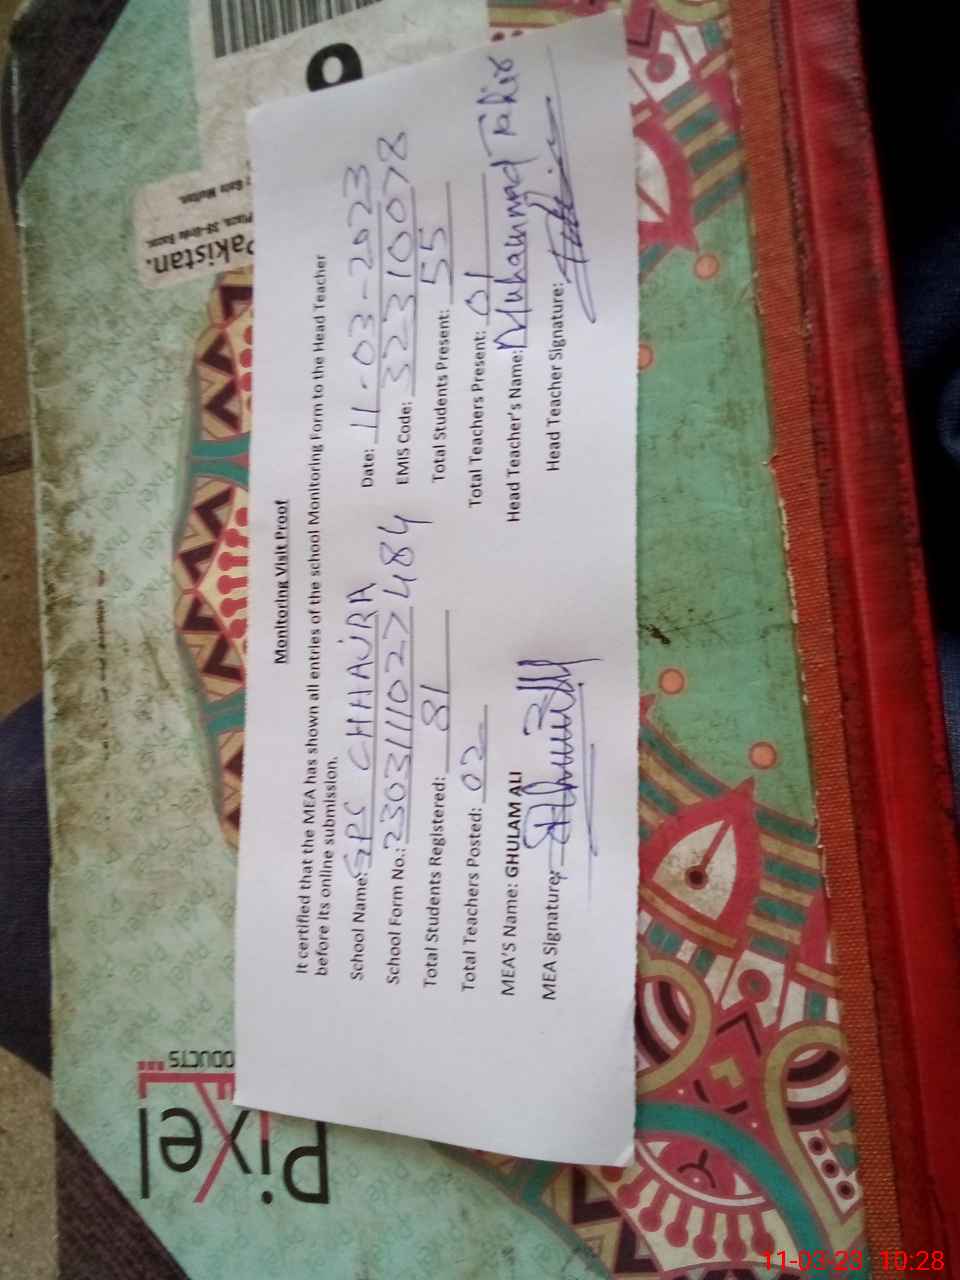 Monitoring Visit Proof
It certified that the MEA has shown all entries of the school Monitoring Form to the Head Teacher
before its online submission.
School Name: GPS CHHAJRA Date: 11-03-2023
School Form No.: 2303111027484 EMIS Code: 322310078
Total Students Registered: 81 Total Students Present: 55
Total Teachers Posted: 02 Total Teachers Present: 01
MEA'S Name: GHULAM ALI Head Teacher's Name: Muhammad Tahir
MEA Signature: Head Teacher Signature:
Pixel
ODUCTS
Pakistan.
9
11-03-23 10:28